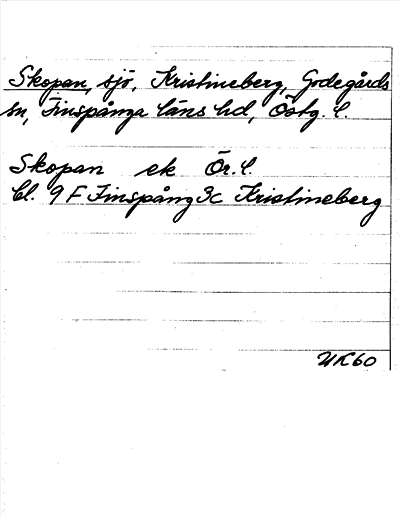 Skopan, sjö, Kristineberg, Godegårds
sn, Finspånga läns hd, Östg. l.
Skopan ek Ör. l.
bl. 9 F Finspång 3c Kristineberg
UK60